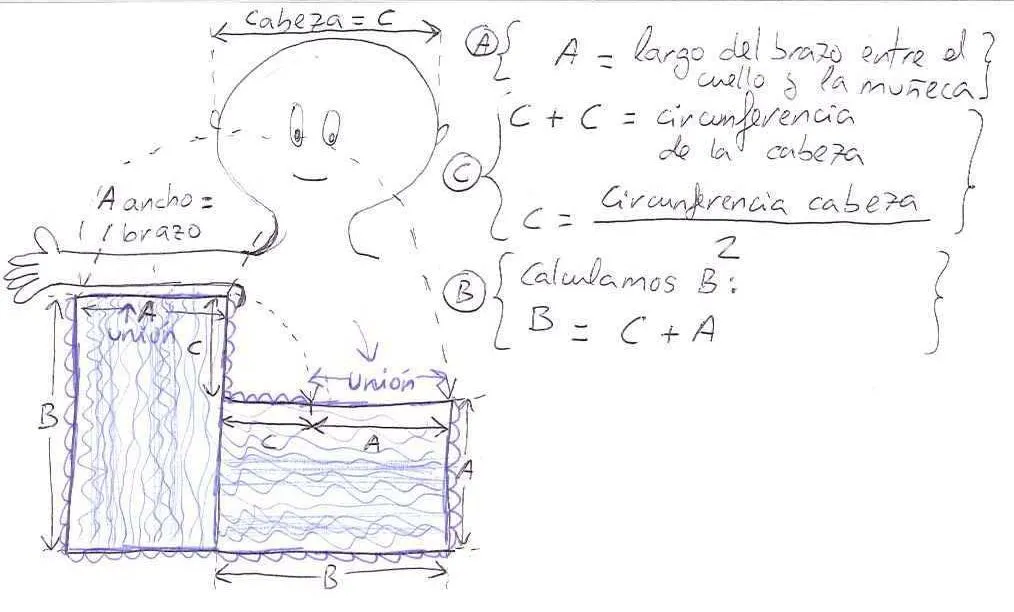 Cabeza = C
A
A = largo del brazo entre el
cuello y la muñeca
C + C = circunferencia
de la cabeza
C
C = Circunferencia cabeza
2
A ancho =
brazo
B
Calculamos B:
B = C + A
A
unión
C
B
unión
C
A
A
B